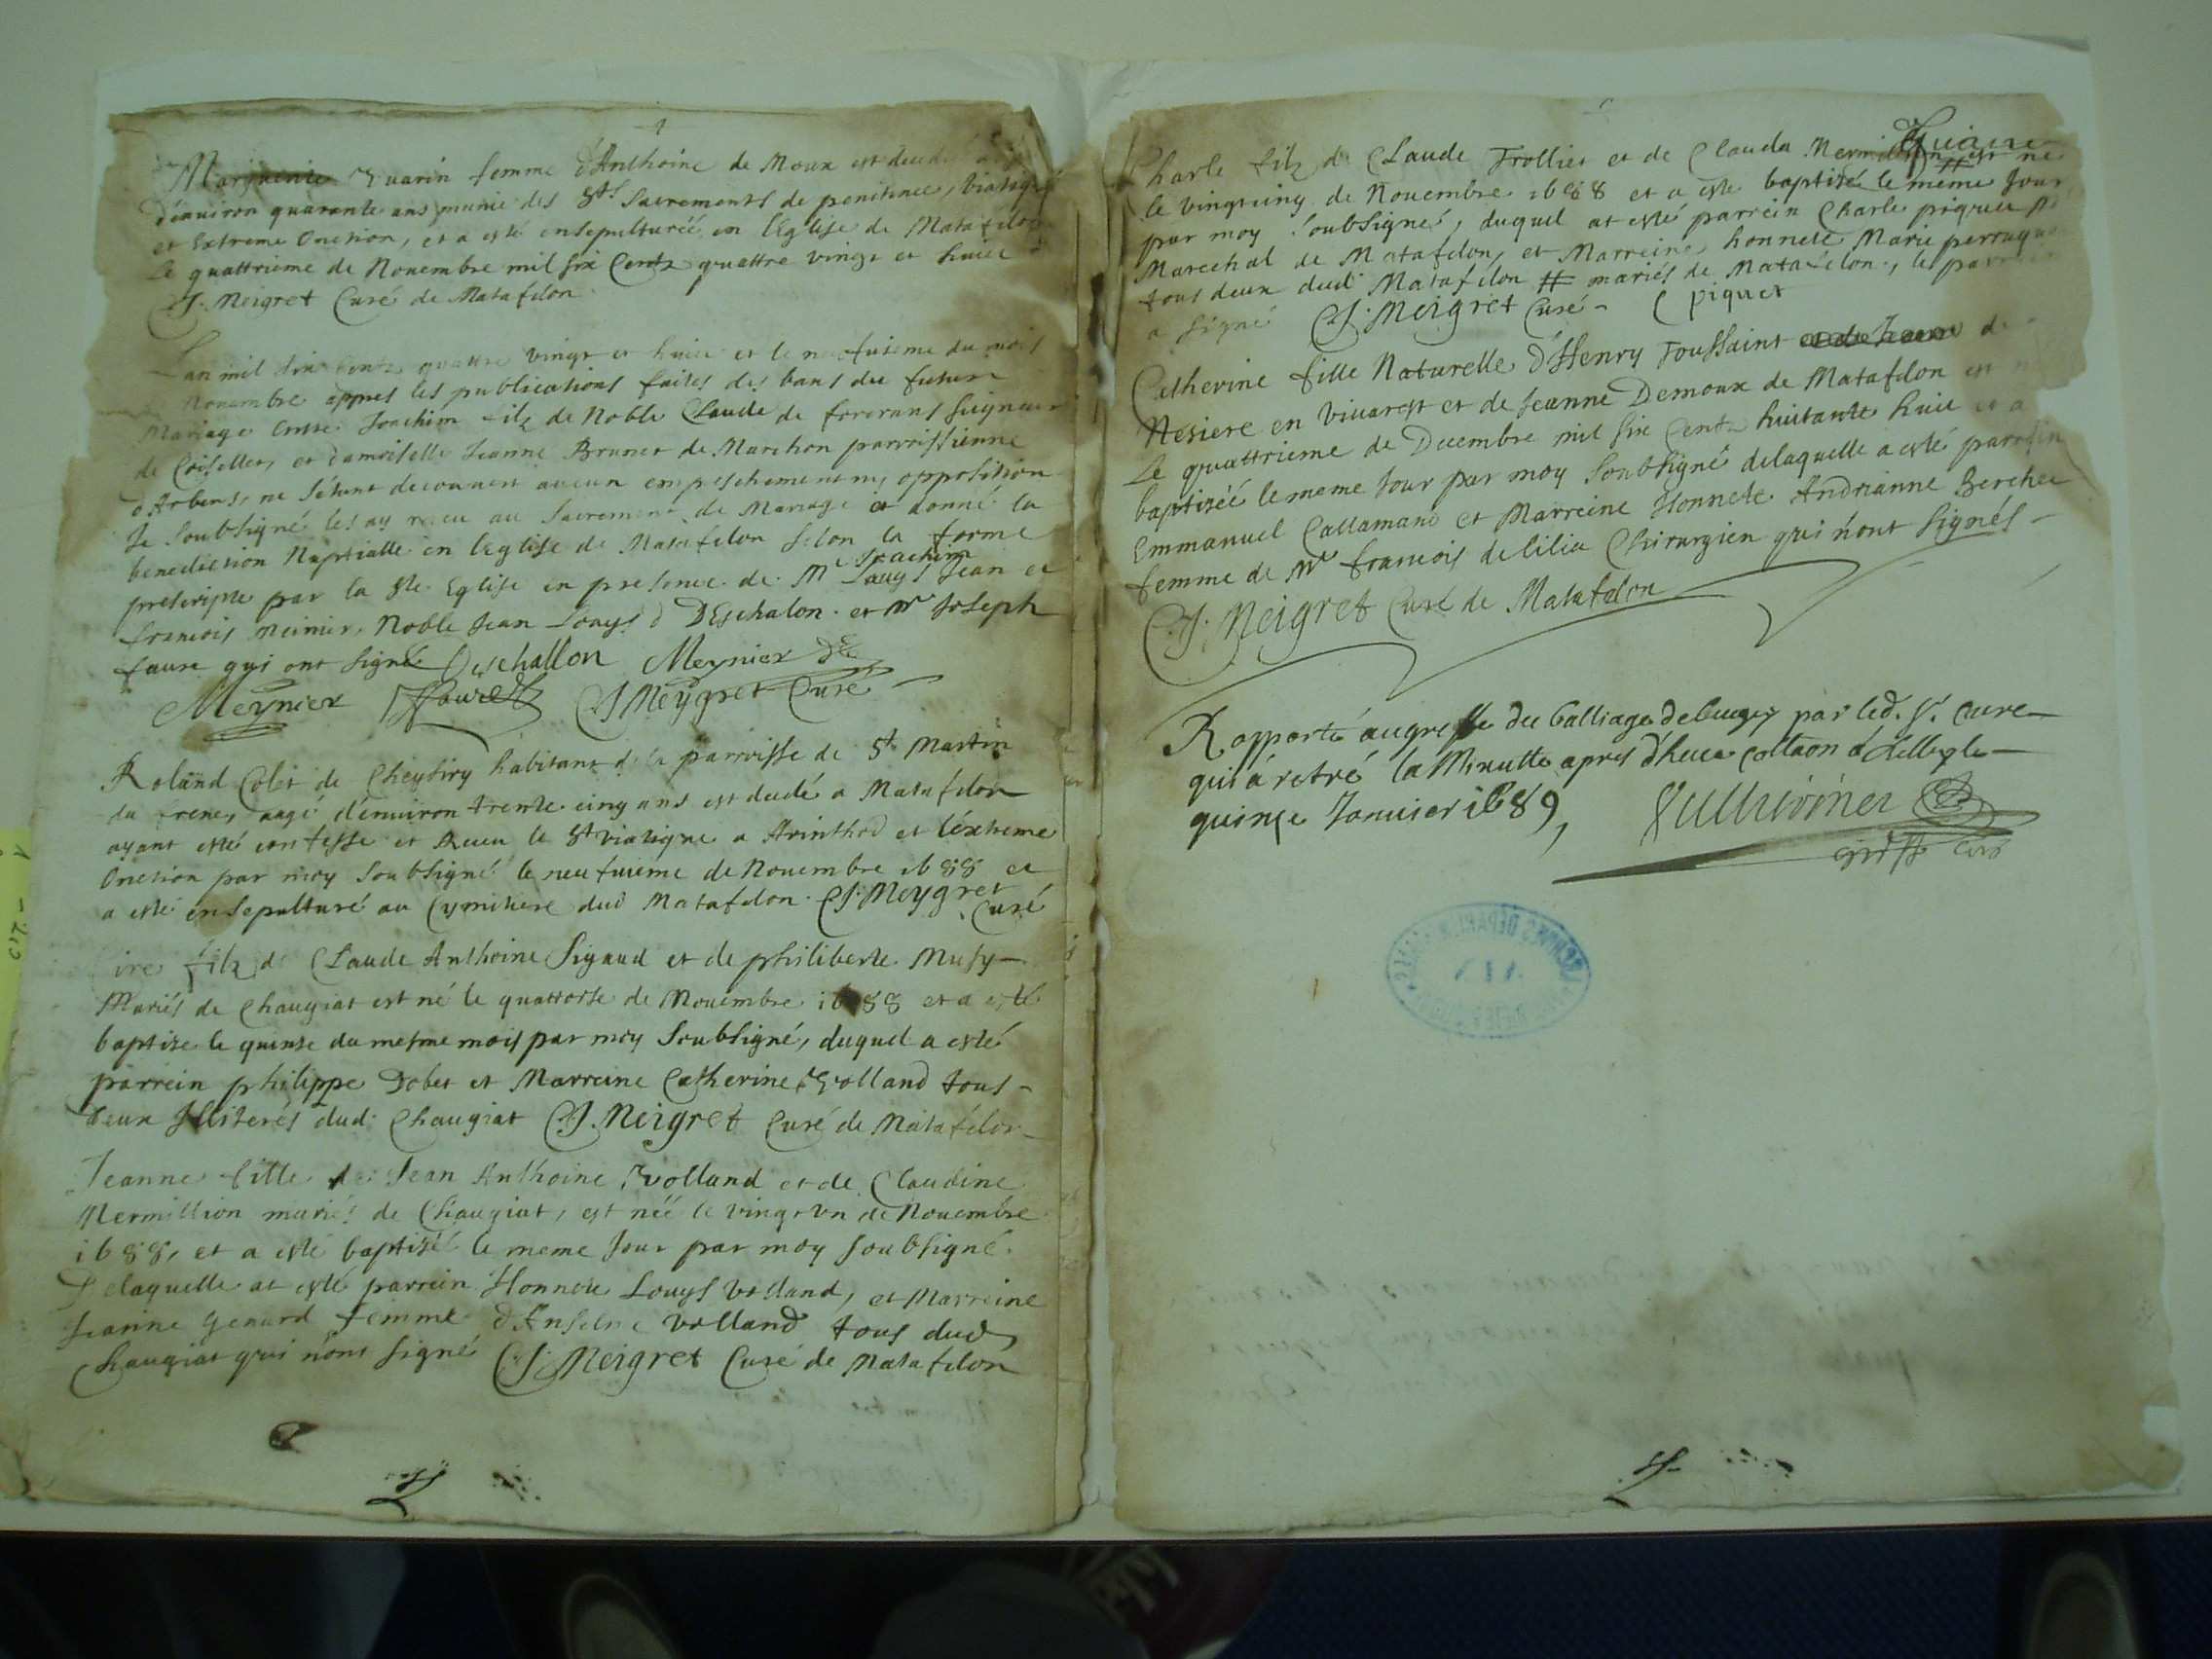 Marguerite Guarin femme d'Anthoine de Moux est decedé
d'enuiron quarante ans munie des Sts. Sacrements de penitence, viatique
et Extreme Onction, et a esté ensepulturéé en l'Eglise de Matafelon
le quattrieme de Nouembre mil six Centz quattre vingt et huict
C. J. Meigret Curé de Matafelon
Lan mil six Centz quattre vingt et huict et le neufuieme du mois
Nouembre appres les publications faites des bans du futur
Mariage entre Joachim filz de Noble Claude de forcrans seigneur
de Coiselles, et damoiselle Jeanne Brunet de Marchon parroissienne
d'Arbens, ne s'étant decouuert aucun empeschement ny opposition
Je soubsigné les ay receu au Sacrement de Mariage et donné la
benediction Nuptialle en l'eglise de Matafelon selon la forme
prescripte par la Ste. Eglise en presence de Mr Joachim Jean et
francois meinier, Noble Jean Louys d DEschalon et Mr Joseph
faure qui ont signé Deschallon Meynier
Meynier Faure C J Meygret Curé
Roland Colet de Cheysiry habitant de la parroisse de St Martin
du frene, aagé d'enuiron trente cinq ans est decedé a Matafelon
ayant esté confesse et Receu le St viatique a Arinthod et l'extreme
Onction par moy soubsigné le neufuieme de Nouembre 1688 et
a esté ensepulturé au Cymitiere dud Matafelon. C J. Meygret Curé
filz de Claude Anthoine Sigaud et de philiberte Musy
Mariés de Chaugiat est né le quattorse de Nouembre 1688 et a esté
baptize le quinze du mesme mois par moy soubsigné, duquel a esté
parrein philippe Dobet et Marreine Catherine Volland tous
deux Jlliterés dud. Chaugiat C J. Meigret Curé de Matafelon
Jeanne fille de Jean Anthoine Volland et de Claudine
Mermillion mariés de Chaugiat, est néé le vingt vn de Nouembre
1688, et a esté baptizéé le meme jour par moy soubsigné
Delaquelle at esté parrein Honnete Louys Volland, et Marreine
Jeanne Genard femme d'Anselme Volland tous dud
Chaugiat qui n'ont signé C J. Meigret Curé de Matafelon
Charle filz de Claude Trolliet et de Clauda est né
le vingtcinq de Nouembre 1688 et a este baptizé le meme jour
par moy soubsigné, duquel at esté parrein Charle piquet
Marechal de Matafelon, et Marreine honnete Marie
tous deux dud Matafelon # mariés de Matafelon, les parrein
a signé C J. Meigret Curé C piquet
Catherine fille Naturelle d'Henry Toussaint de
Nesiere en viuarest et de Jeanne Demoux de Matafelon est
Le quattrieme de Decembre mil six Centz huitante huict et a
baptizéé le meme jour par moy soubsigné delaquelle a esté parrein
Emmanuel Callamand et Marreine Honnete Andrianne Berchet
femme de Mr francois de lilia Chirurgien qui n'ont signés
C. J. Meigret Curé de Matafelon
Rapporté au greffe du balliage de bugey par led. Sr. cure
qui a retiré la Minutte apres d'heue collaon a Belley le
quinze Januier 1689,